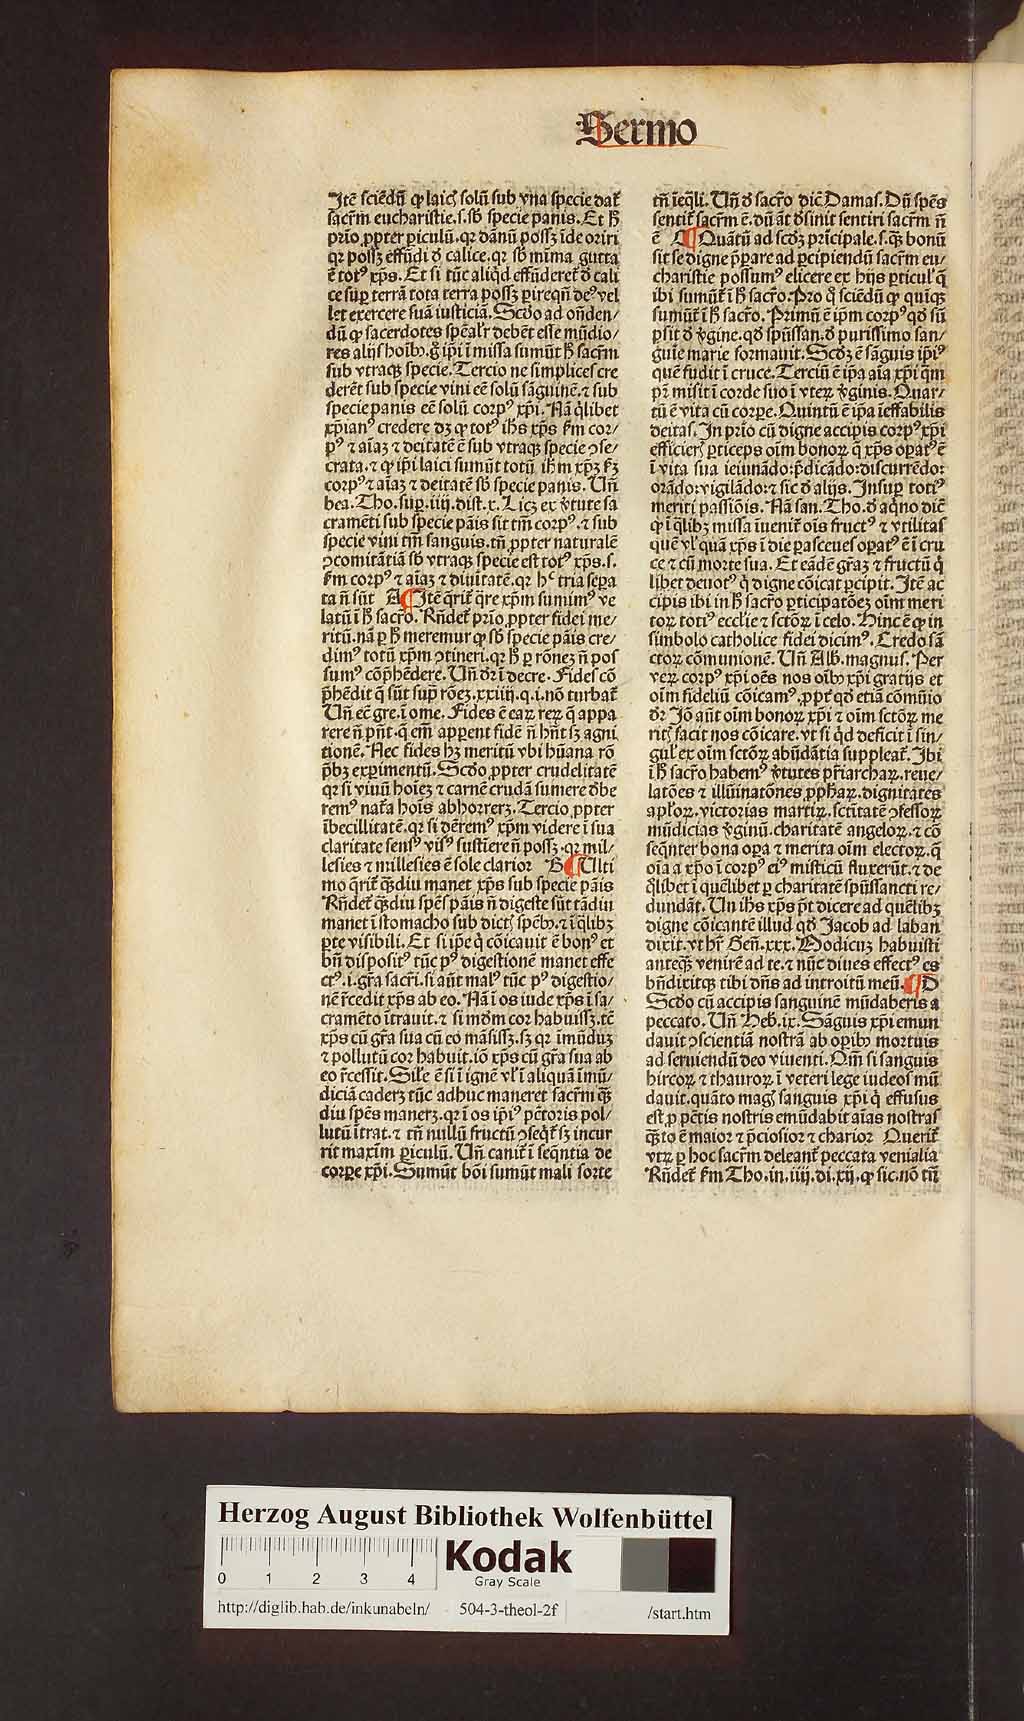 Sermo
Itē sciēdū ꝙ laicꝭ solū sub vna specie dat᷑
sacr̄m eucharistie.s.sb̄ specie panis. Et h̄
prīo ꝓpter piculū.qꝛ dānū possꝫ īde oriri
qꝛ possꝫ effūdi d̄ calice.qꝛ sb̄ mīma gutta
ē totꝰ xp̄s. Et si tūc aliqͥd effūderet᷑ d̄ cali
ce sup terrā tota terra possꝫ pireqn̄ deꝰ vel
let exercere suā iusticiā. Scd̄o ad on̄den⸗
dū ꝙ sacerdotes spēalr̄ debēt esse mūdio⸗
res alijs hoībꝰ.g̊ ip̄i ī missa sumūt h̄ sacr̄m
sub vtraqꝫ specie. Tercio ne simplices cre
derēt sub specie vini eē solū sāguinē.⁊ sub
specie panis eē solū corpꝰ xp̄i. Nā qͥlibet
xp̄ianꝰ credere dꝫ ꝙ totꝰ ihs xp̄s ẜm cor⸗
pꝰ ⁊ aīaꝫ ⁊ deitatē ē sub vtraqꝫ specie ↄse⸗
crata.⁊ ꝙ ip̄i laici sumūt totū ih̄m xp̄ꝫ ẜꝫ
corpꝰ ⁊ aīaꝫ ⁊ deitatē sb̄ specie panis. Un̄
bea. Tho. sup. iiij. dist. x. Licꝫ ex v̓tute sa
cramēti sub specie pāis sit tm̄ corpꝰ.⁊ sub
specie vini tm̄ sanguis.tn̄ ꝓpter naturalē
ↄcomitātiā sb̄ vtraqꝫ specie est totꝰ xp̄s.s.
ẜm corpꝰ ⁊ aīaꝫ ⁊ diuitatē.qꝛ hͨ tria sepa
ta n̄ sūt A ¶ Itē qͥrit᷑ qͣre xp̄m sumimꝰ ve
latū ī h̄ sacr̄o. Rn̄det᷑ prīo ꝓpter fidei me⸗
ritū.nā p h̄ meremur ꝙ sb̄ specie pāis cre⸗
dimꝰ totū xp̄m ↄtineri.qꝛ h̄ p rōneꝫ n̄ pos
sumꝰ cōp̄hēdere. Un̄ dr̄ ī decre. Fides cō
p̄hēdit q̄ sūt sup rōeꝫ.xxiiij.q.i.nō turbat᷑
Un̄ eē gre.ī ome. Fides ē eaꝝ reꝝ q̄ appa
rere n̄ pn̄t.q em̄ apparent fidē n̄ hn̄t sꝫ agni
tionē. Nec fides hꝫ meritū vbi hūana rō
p̄bꝫ experimentū. Scd̄o ꝓpter crudelitatē
qꝛ si viuū hoieꝫ ⁊ carnē crudā sumere d̓be
remꝰ nat᷑a hoīs abhorrerꝫ. Tercio ꝓpter
ībecillitatē.qꝛ si dērem᷑ xp̄m videre ī sua
claritate sensꝰ visꝰ sustīere n̄ possꝫ.qꝛ mil⸗
lesies ⁊ millesies ē sole clarior B ¶ Ulti
mo qͥrit᷑ qͣdiu manet xp̄s sub specie pāis
Rn̄det᷑ qͣdiu spēs pāis n̄ digeste sūt tādiu
manet ī stomacho sub dictꝭ spēbꝰ.⁊ ī qͣlibꝫ
pte visibili. Et si ip̄e qͥ cōicauit ē bonꝰ et
bn̄ dispositꝰ tūc pꝰ digestionē manet effe
ctꝰ.i.gr̄a sacr̄i.si aūt malꝰ tūc pꝰ digestio⸗
nē r̄cedit xp̄s ab eo. Nā ī os iude xp̄s ī sa⸗
cramēto ītrauit.⁊ si mōm cor habuissꝫ.tē
xp̄s cū gr̄a sua cū eo māsissꝫ.sꝫ qꝛ imūduꝫ
⁊ pollutū cor habuit.iō xp̄s cū gr̄a sua ab
eo r̄cessit. Sile ē si ī ignē vl̓ ī aliquā imū⸗
diciā caderꝫ tūc adhuc maneret sacr̄m qͣꝫ
diu spēs manerꝫ.qꝛ ī os ip̄iꝰ pc̄toris pol⸗
lutū ītrat.⁊ tn̄ nullū fructū ↄseqͥt᷑ sꝫ incur
rit maxim piculū. Un̄ canit᷑ ī seqn̄tia de
corpe xp̄i. Sumūt boni sumūt mali sorte
tn̄ īeqͣli. Un̄ d̄ sacr̄o dic̄ Damas. Dū spēs
sentit᷑ sacr̄m ē.dū āt d̓sinit sentiri sacr̄m n̄
ē C ¶ Quātū ad scd̓ꝫ prīcipale.s.qͣꝫ bonū
sit se digne p̄pare ad pcipiendū sacr̄m eu⸗
charistie possumꝰ elicere ex hijs pticulꝭ q̄
ibi sumūt᷑ ī h̄ sacr̄o. Pro qͦ sciēdū ꝙ quīqꝫ
sumūt᷑ ī h̄ sacr̄o. Primū ē ip̄m corpꝰ qd̓ sū
psit d̄ v̓gine.qd̓ sp̄ussan.d̄ purissimo san⸗
guīe marie formauit. Scd̓ꝫ ē sāguis ip̄iꝰ
quē fudit ī cruce. Terciū ē ip̄a aīa xp̄i qͣm
pr̄ misit ī corde suo ī vteꝝ v̓ginis. Quar⸗
tū ē vita cū corpe. Quintū ē ip̄a īeffabilis
deitas. In prīo cū digne accipis corpꝰ xp̄i
efficierꝭ pticeps oīm bonoꝝ q̄ xp̄s opatꝰ ē
ī vita sua ieiunādo:p̄dicādo:discurrēdo:
orādo:vigilādo:⁊ sic d̄ alijs. Insup totiꝰ
meriti passiōis. Nā san. Tho. d̄ aqͥno dic̄
ꝙ ī qͣlibꝫ missa īuenit᷑ oīs fructꝰ ⁊ vtilitas
quē vl̓ quā xp̄s ī die pasceues opatꝰ ē ī cru
ce ⁊ cū morte sua. Et eādē gr̄aꝫ ⁊ fructū qͥ
libet deuotꝰ qͥ digne cōicat pcipit. Itē ac
cipis ibi in h̄ sacr̄o pticipatōeꝫ oīm meri
toꝝ totiꝰ ecclie ⁊ sctōꝝ ī celo. Hinc ē ꝙ in
simbolo catholice fidei dicimꝰ. Credo sā
ctoꝝ cōmunionē. Un̄ Alb. magnus. Per
veꝝ corpꝰ xp̄i oēs nos oībꝰ xp̄i gratijs et
oīm fideliū cōicamꝰ.ꝓpt᷑ qd̓ etiā cōmūio
dr̄. Iō aūt oīm bonoꝝ xp̄i ⁊ oīm sctōꝝ me
ritꝭ facit nos cōicare.vt si qͥd deficit ī sin⸗
gulꝭ ex oīm sctōꝝ abūdātia suppleat᷑. Ibi
ī h̄ sacr̄o habemꝰ v̓tutes pr̄iarchaꝝ.reue⸗
latōes ⁊ illūinatōnes ꝓphaꝝ.dignitates
apl̓oꝝ.victorias martiꝝ.sctītatē ↄfessoꝝ
mūdicias v̓ginū.charitatē angeloꝝ.⁊ cō
seqn̄ter bona opa ⁊ merita oīm electoꝝ.q̄
oīa a xp̄o ī corpꝰ eiꝰ misticū fluxerūt.⁊ de
qͣlibet ī quēlibet p charitatē sp̄ussancti re⸗
dundāt. Un ihs xp̄s pt̄ dicere ad quēlibꝫ
digne cōicantē illud qd̓ Jacob ad laban
dixit.vt hr̄ Gen̄.xxx. Modicuꝫ habuisti
anteqͣꝫ venirē ad te.⁊ nūc diues effectꝰ es
bn̄dixitqꝫ tibi dn̄s ad introitū meū. ¶ D
Scd̓o cū accipis sanguinē mūdaberis a
peccato. Un̄ Heb̄.ix. Sāguis xp̄i emun
dauit ↄscientiā nostrā ab opibꝰ mortuis
ad seruiendū deo viuenti. Om̄ si sanguis
hircoꝝ ⁊ thauroꝝ ī veteri lege iudeos mū
dauit.quāto magꝭ sanguis xp̄i qͥ effusus
est ꝓ pctīs nostris emūdabit aīas nostras
qͣto ē maior ⁊ p̄ciosior ⁊ charior Querit᷑
vtꝝ p hoc sacr̄m deleant᷑ peccata venialia
Rn̄det᷑ ẜm Tho.in.iiij.di.xij.ꝙ sic.nō tn̄
Herzog August Bibliothek Wolfenbüttel
0 1 2 3 4
Kodak
Gray Scale
http://diglib.hab.de/inkunabeln/ 504-3-theol-2f /start.htm